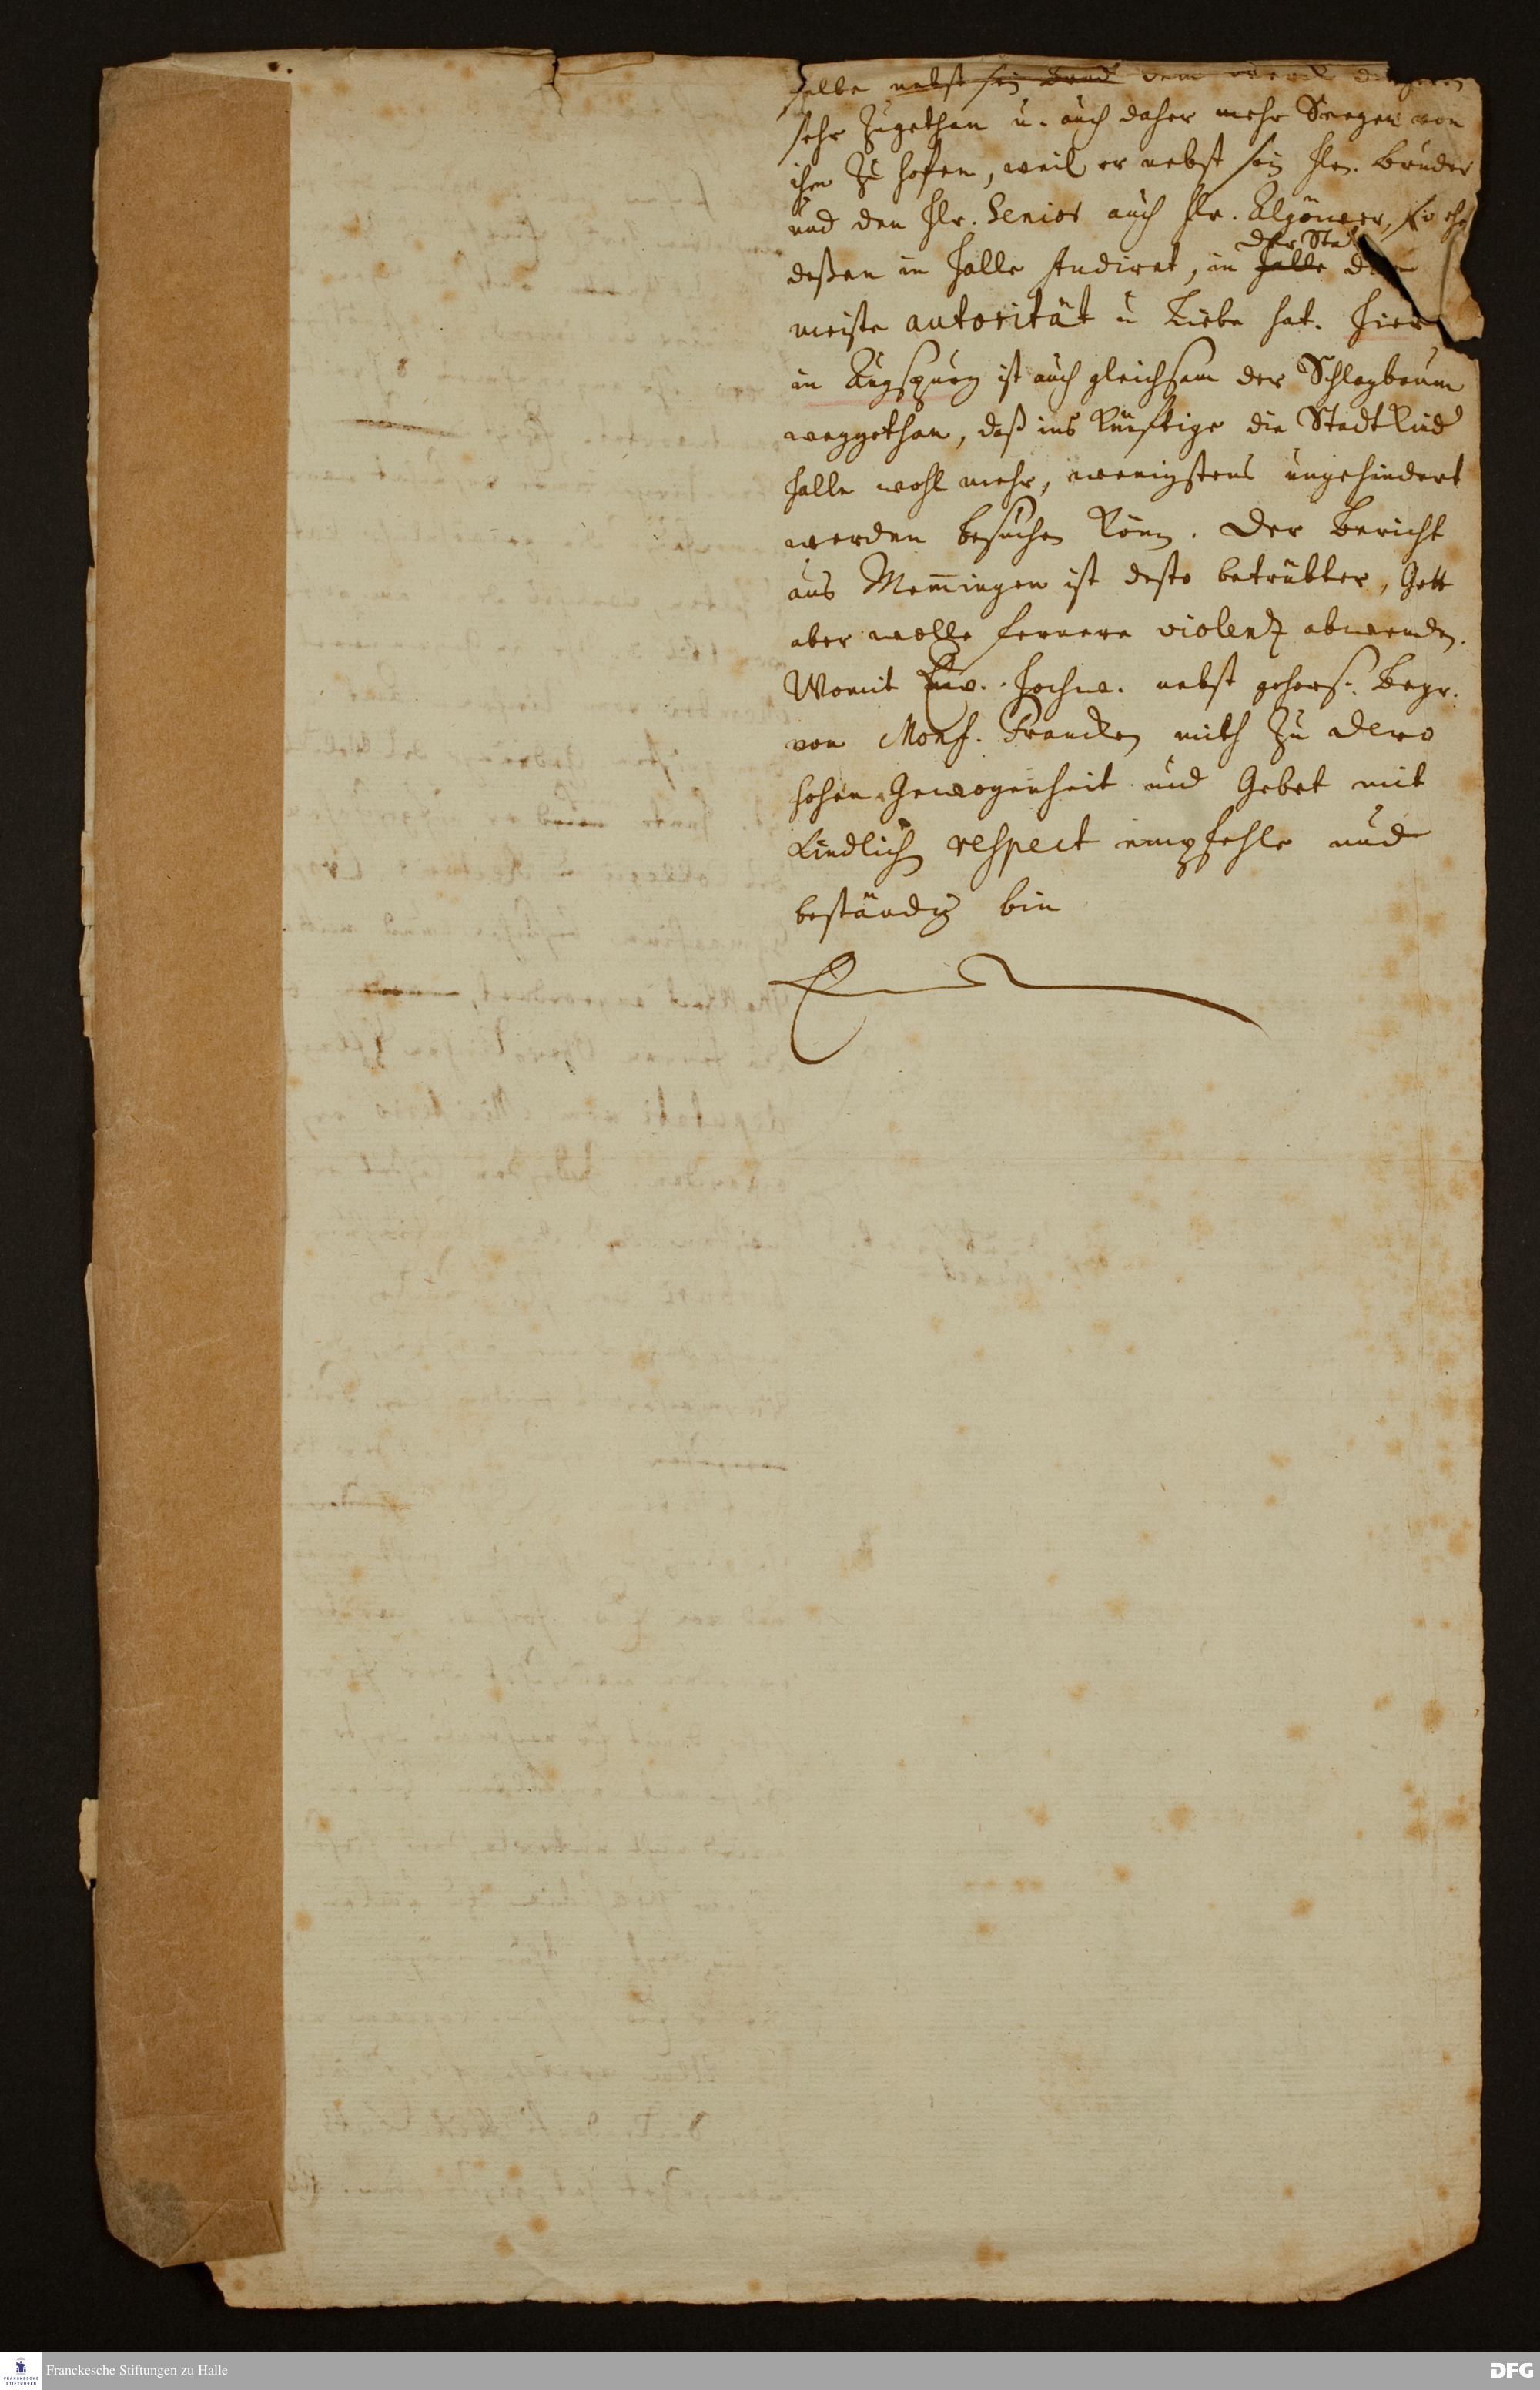 selbe nebst sein Brud dem werck
sehr zugethan u. auch daher mehr Seegen von
ihm zu hofen, weil er nebst sein Hrn. Bruder
und den Hr. Senior auch Hr. Algöwer,
der Sta
deßen in Halle studiret, in Halle
meiste autorität u Liebe hat. Hier
in Augspurg ist auch gleichsam der Schlagbaum
weggethan, daß ins künftige die StadtKind
Halle wohl mehr, wenigstens ungehindert
werden besuchen könn. Der Bericht
aus Mem̄ingen ist desto betrübter, Gott
aber wolle fernere violenz abwenden.
Womit Euw. Hochw. nebst gehors. Begr.
von Mons. Francken mich zu dero
hohen Gewogenheit und Gebet mit
kindlich respect empfehle und
beständig bin
Franckesche Stiftungen zu Halle
DFG